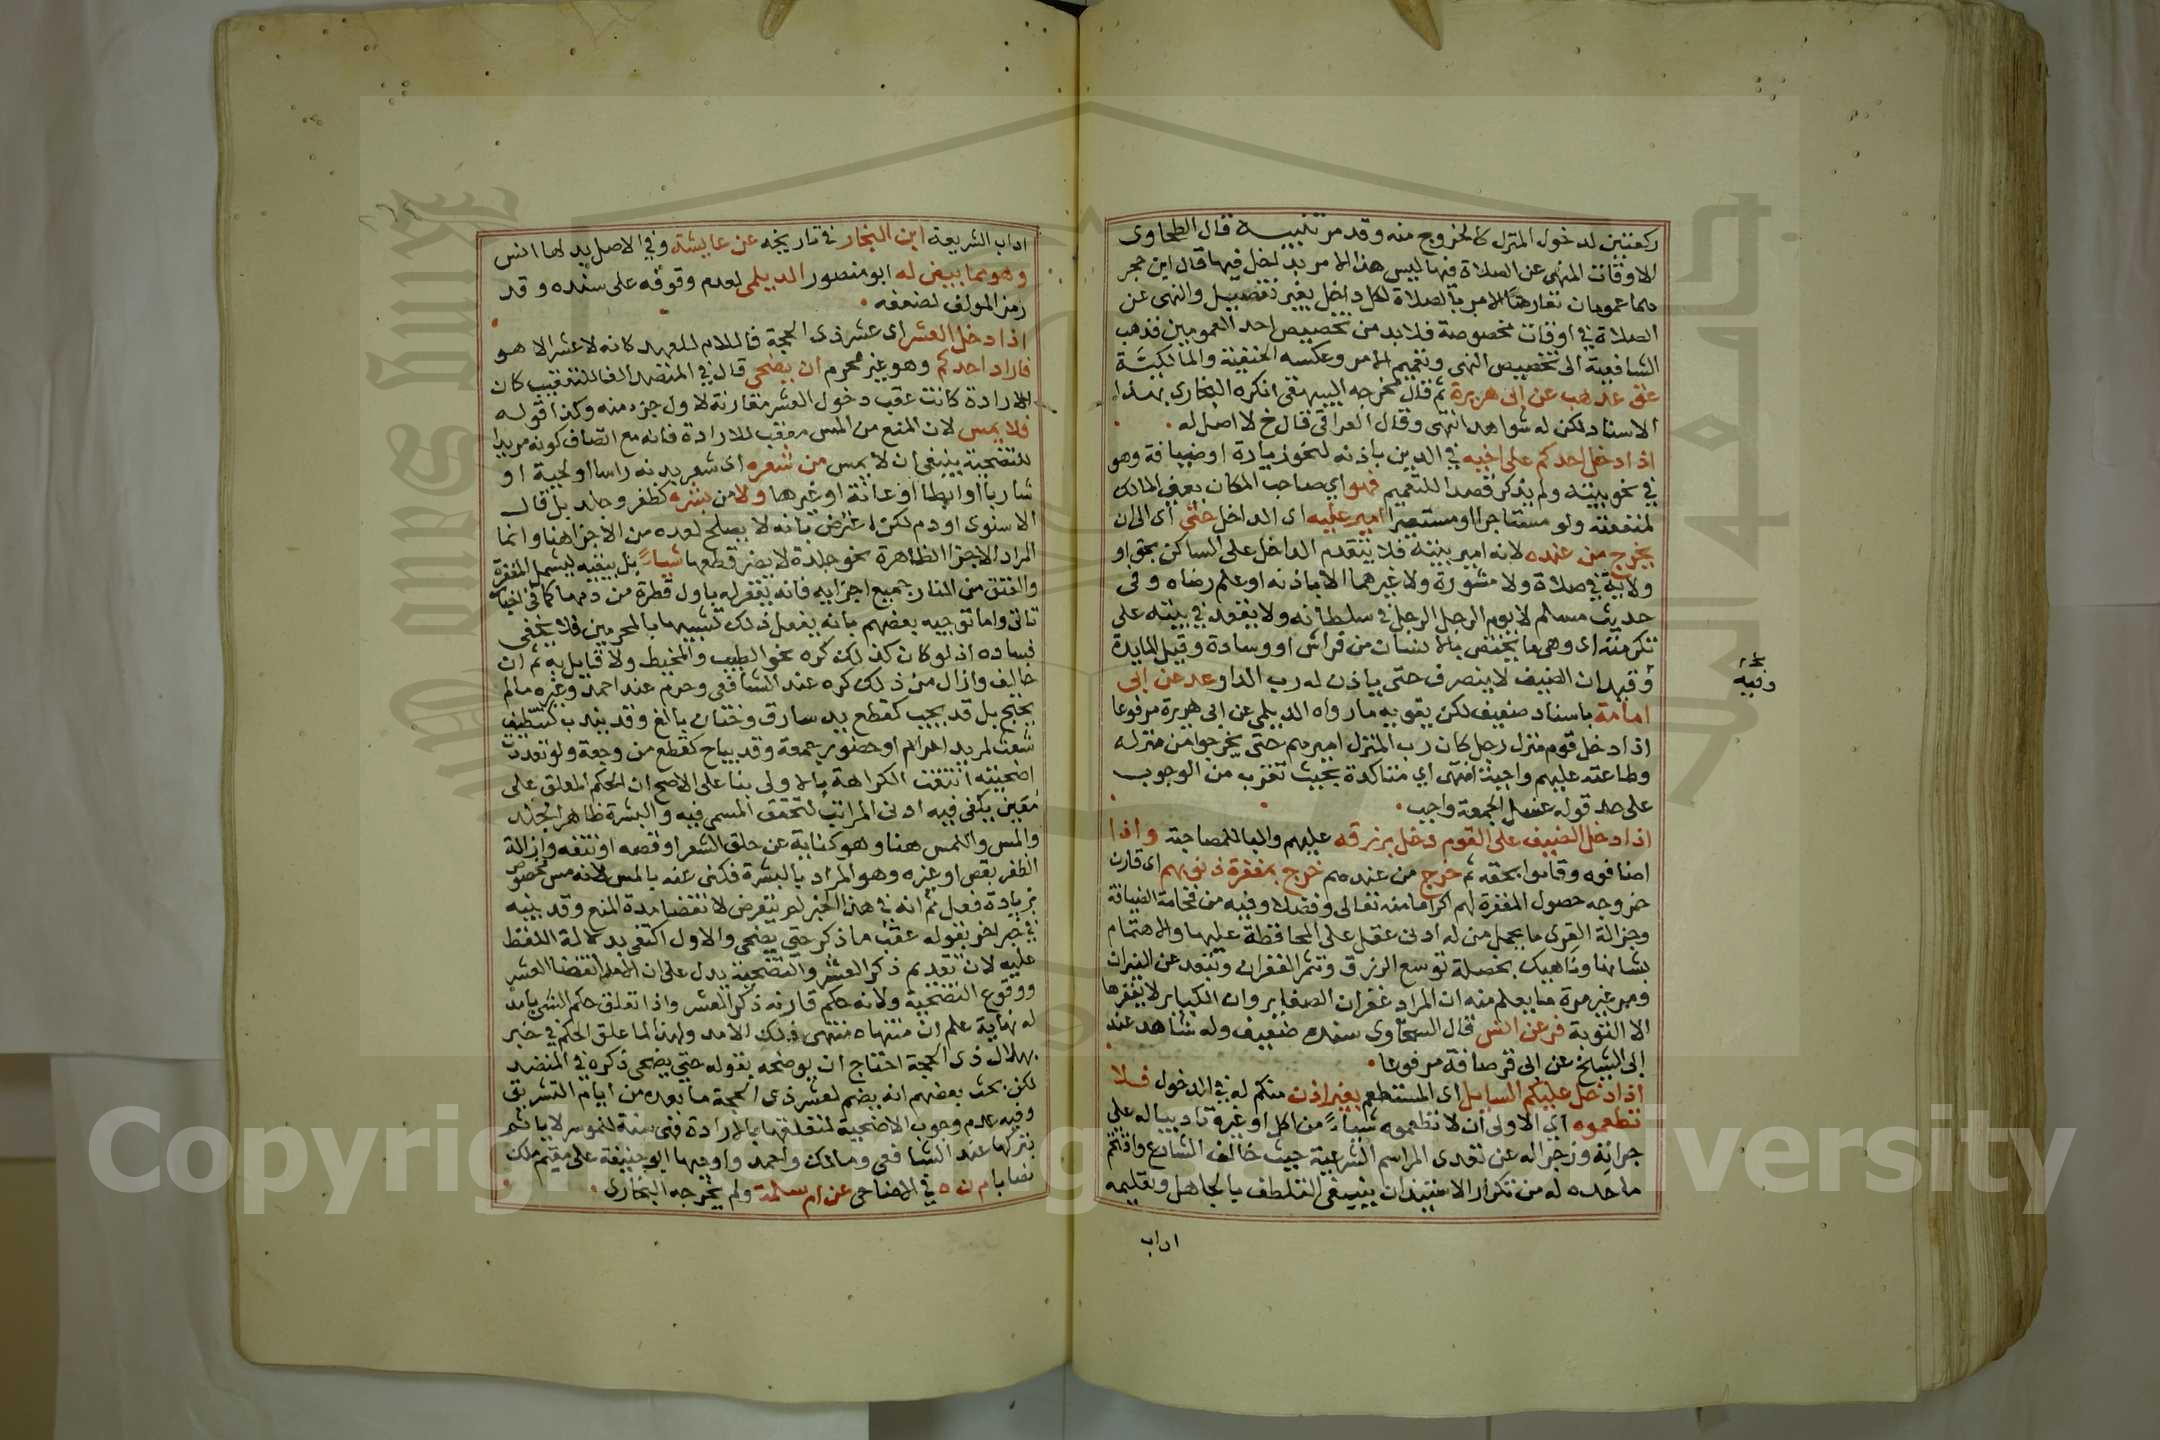 ركعتين لدخول المنزل كالخروج منه وقد مر تنبيه قال الطحاوى
الاوقات المنهى عن الصلاة فيها ليس هذا الامر بداخل فيها قال ابن حجر
هما عمومان تعارضا الامر بالصلاة لكل داخل بغير تفصيل والنهى عن
الصلاة في اوقات مخصوصة فلابد من تخصيص احد العمومين فذهب
الشافعية الى تخصيص النهى وتعميم الامر وعكسه الحنفية والمالكية
عق عد هب عن ابى هريرة ثم قال مخرجه البيهقى انكره البخارى بهذا
الاسناد لكن له شواهد انتهى وقال العراقى قال خ لا اصل له
اذا دخل احدكم على اخيه في الدين باذنه لنحو زيارة او ضيافة وهو
في نحو بيته ولم يذكر قصدا للتعميم فهو اي صاحب المكان يعنى المالك
لمنفعته ولو مستاجرا او مستعيرا امير عليه اى الداخل حتى أى الى ان
يخرج من عنده لانه امير بيته فلا يتقدم الداخل على الساكن بحق او
ولاية في صلاة ولا مشورة ولا غيرهما الا باذنه او علم رضاه وفى
حديث مسلم لا يوم الرجل الرجل في سلطانه ولا يقعد في بيته على
تكرمته اى وهى ما يختص بالانسان من فراش او وسادة وقيل المايدة
وفيه ان الضيف لا ينصرف حتى ياذن له رب الدار عد عن ابى
امامة باسناد ضعيف لكن يقويه ما رواه الديلمى عن ابى هريرة مرفوعا
اذا دخل قوم منزل رجل كان رب المنزل اميرهم حتى يخرجوا من منزله
وطاعته عليهم واجبة انتهى اي متاكدة بحيث تقرب من الوجوب
على حد قوله غسل الجمعة واجب
اذا دخل الضيف على القوم دخل برزقه عليهم والبا للمصاحبة واذا
اضافوه وقاموا بحقه ثم خرج من عندهم خرج بمغفرة ذنوبهم اى قارن
خروجه حصول المغفرة لهم اكراما منه تعالى وفضلا وفيه من فخامة الضيافة
وجزالة القرى ما يحمل من له ادنى عقل على المحافظة عليها والاهتمام
بشانها وناهيك بخصلة توسع الرزق وتثمر الغفران وتبعد عن النيران
ومر غير مرة ما يعلم منه ان المراد غفران الصغاير وان الكباير لا يغفرها
الا التوبة فر عن انس قال السخاوى سنده ضعيف وله شاهد عند
ابى الشيخ عن ابى قرصافة مرفوعا
اذا دخل عليكم السايل اى المستطعم بغير اذن منكم له في الدخول فلا
تطعموه اى الاولى ان لا تطعموه شيا من اكل او غيره تاديبا له على
جراته وزجرا له عن تعدى المراسم الشرعية حيث خالف الشارع واقتحم
ما حده له من تكرار الاستيذان ينبغى التلطف بالجاهل وتعليمه
اداب
وفيه
اداب الشريعة ابن النجار في تاريخه عن عايشة وفي الاصل بدلها انس
وهو مما بيض له ابو منصور الديلمى لعدم وقوفه على سنده وقد
رمز المولف لضعفه
اذا دخل العشر اى عشر ذى الحجة فاللام للعهد كانه لا عشر الا هو
فاراد احدكم وهو غير محرم ان يضحى قال في المنضد الفا للتعقيب كان
الارادة كانت عقب دخول العشر مقارنة لاول جزء منه وكذا قوله
فلا يمس لان المنع من المس معقب للارادة فانه مع اتصاف كونه مريدا
للتضحية ينبغى ان لا يمس من شعره اى شعر بدنه راسا او لحية او
شاربا او ابطا او عانة او غيرها ولا من بشره كظفر وجلد بل قال
الاسنوى او دم لكن اعترض بانه لا يصلح لعده من الاجزا هنا وانما
المراد الاجزا الظاهرة نحو جلدة لا يضر قطعها شيا بل يبقيه ليشمل المغفرة
والعتق من النار جميع اجزايه فانه يغفر له باول قطرة من دمها كما في اخبار
تاتى واما توجيه بعضهم بانه يفعل ذلك تشبيها بالمحرمين فلا يخفى
فساده اذ لو كان كذلك كره نحو الطيب والمخيط ولا قايل به ثم ان
خالف وازال من ذلك كره عند الشافعى وحرم عند احمد وغيره ما لم
يحتج بل قد يجب كقطع يد سارق وختان بالغ وقد يندب كتنظيف
شعث لمريد احرام او حضور جمعة وقد يباح كقطع سن وجعة ولو تعددت
اضحيته انتفت الكراهة بالاولى بنا على الاصح ان الحكم المعلق على
معين يكفى فيه ادنى المراتب لتحقق المسمى فيه والبشرة ظاهر الجلد
والمس واللمس هنا وهو كناية عن حلق الشعر او قصه او نتفه وازالة
الظفر بقص او غيره وهو المراد بالبشرة فكنى عنه بالمس لانه مس مخصوص
بزيادة فعل ثم انه في هذا الخبر لم يتعرض لانقضا مدة المنع وقد بينه
في خبر اخر بقوله عقب ما ذكر حتى يضحى والاول اكتفى بدلالة اللفظ
عليه لان تقديم ذكر العشر والتضحية يدل على ان الامد انقضا العشر
ووقوع التضحية ولانه حكم قارنه ذكر العشر واذا تعلق حكم الشى بامد
له نهاية علم ان منتهاه منتهى ذلك الامد ولهذا لما علق الحكم في خبر
بهلال ذى الحجة احتاج ان يوضحه بقوله حتى يضحى ذكره في المنضد
لكن بحث بعضهم انه يضم لعشر ذى الحجة ما بعده من ايام التشريق
وفيه عدم وجوب الاضحية لتعلقها بالارادة فهى سنة للموسر لا ياثم
بتركها عند الشافعى ومالك واحمد واوجبها ابو حنيفة على مقيم ملك
نصابا م ن ه في الاضاحى عن ام سلمة ولم يخرجه البخارى
Copyright © King Saud University